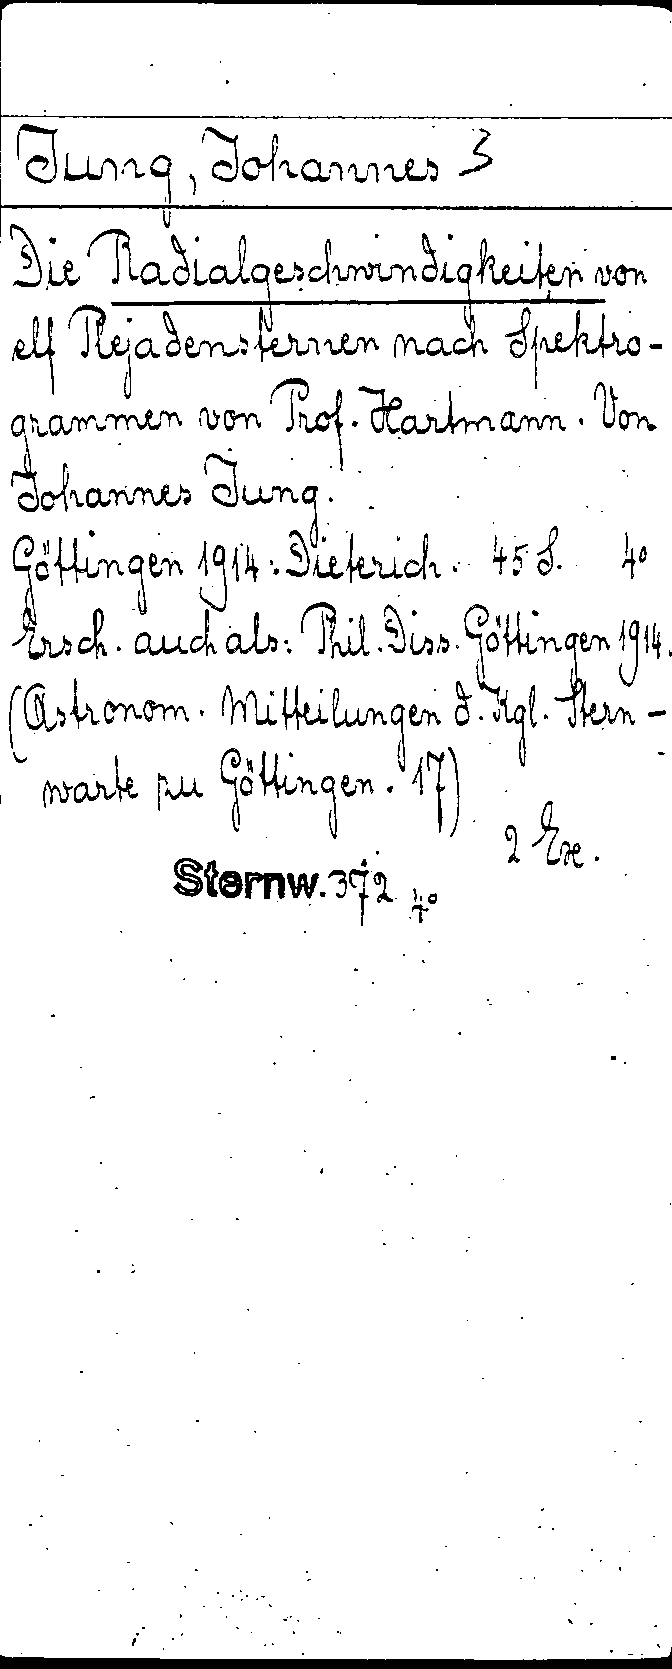 Jung, Johannes 3
Die Radialgeschwindigkeiten von
elf Plejadensternen nach Spektro-
grammen von Prof. Hartmann. Von
Johannes Jung.
Göttingen 1914: Dieterich. 45 S. 4°
Ersch. auch als: Phil. Diss. Göttingen 1914.
(Astronom. Mitteilungen d. Kgl. Stern-
warte zu Göttingen. 17)
2 Ex.
Sternw. 372 4°